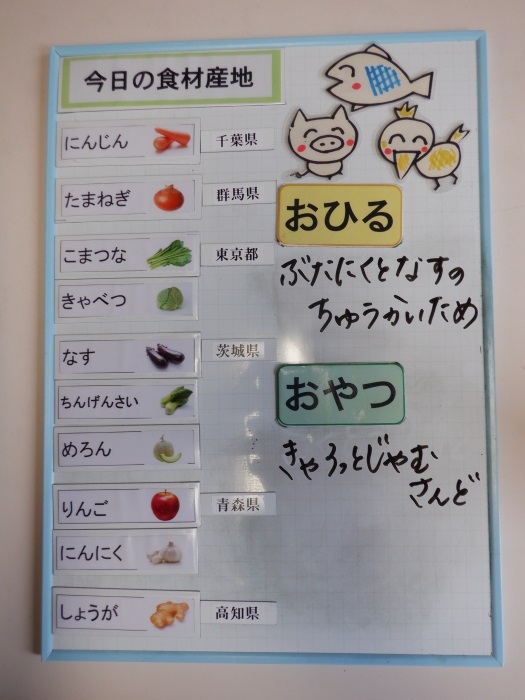 今日の食材産地
にんじん 千葉県
たまねぎ 群馬県
こまつな 東京都
きゃべつ
なす 茨城県
ちんげんさい
めろん
りんご 青森県
にんにく
しょうが 高知県
おひる
ぶたにくとなすの
ちゅうかいため
おやつ
きゃろっとじゃむ
さんど